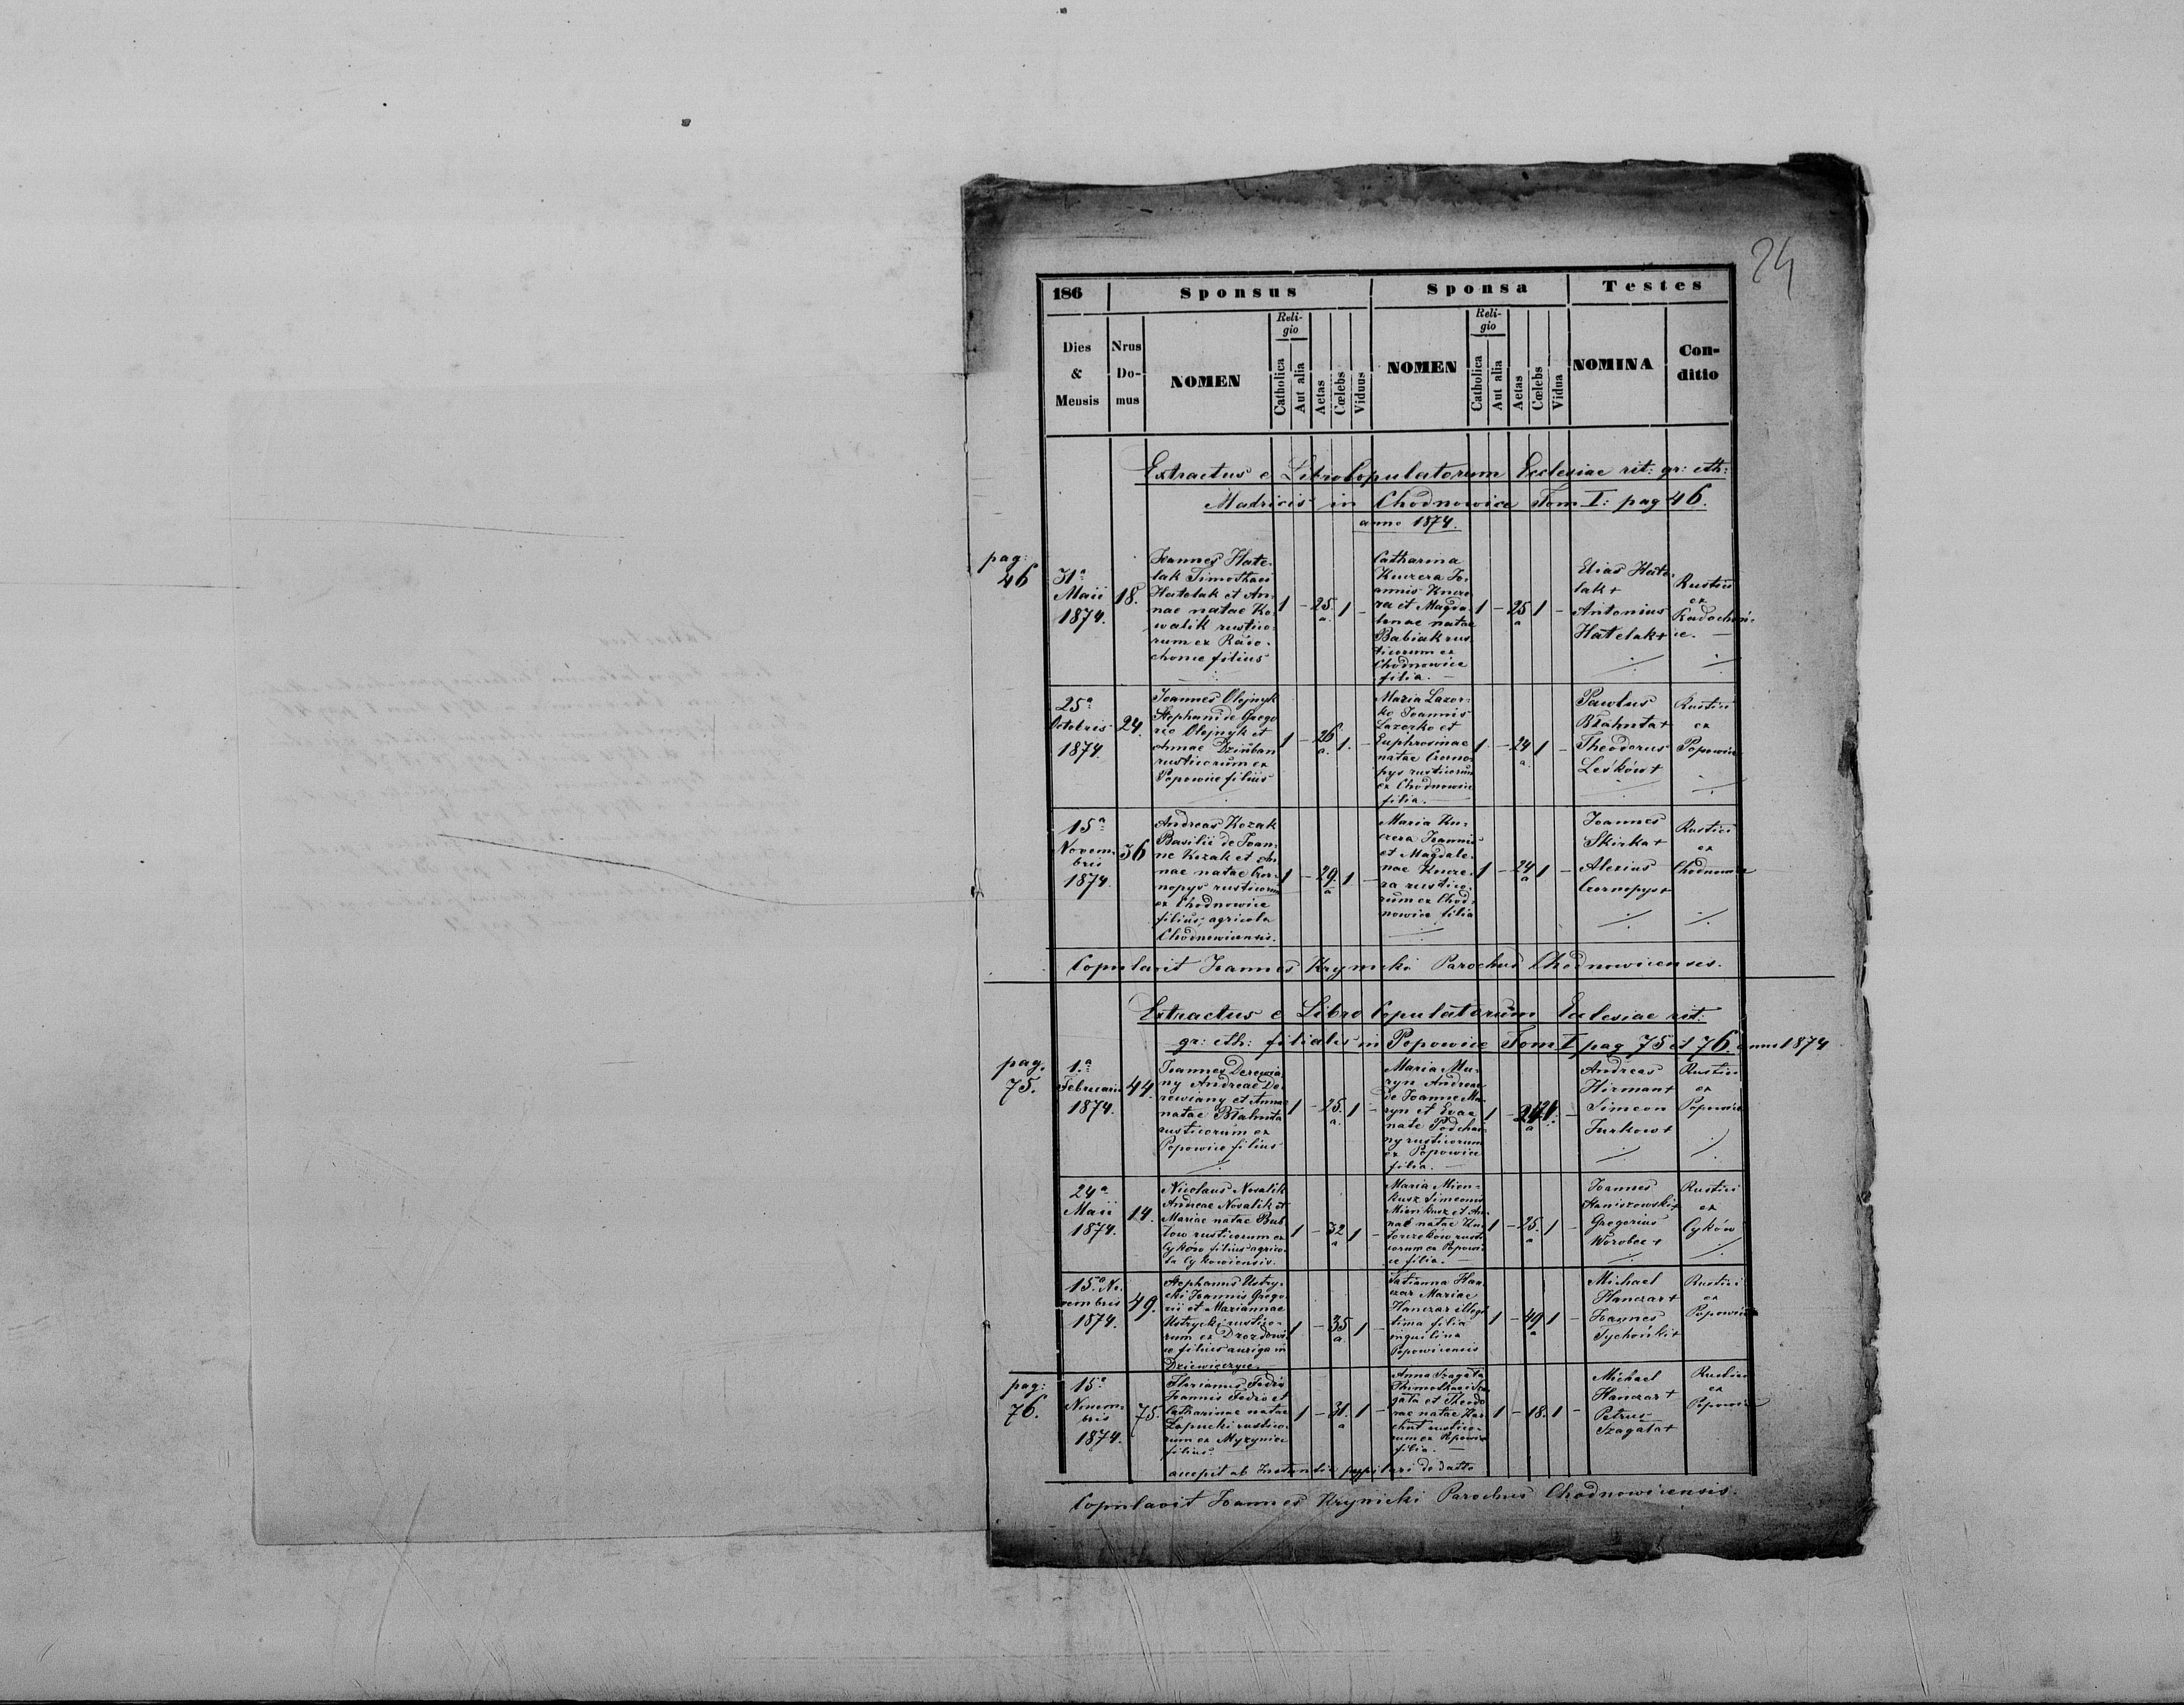 24
186 Sponsus Sponsa Testes
Dies & Mensis
Nrus Domus
NOMEN
Religio
Catholica
Aut alia
Aetas
Cœlebs
Viduus
NOMEN
Religio
Catholica
Aut alia
Aetas
Cœlebs
Vidua
NOMINA
Conditio
Extractus e Libro Copulatorum Ecclesiae rit: gr: cth:
Matricis in Chodnowice Tom I: pag 46.
anno 1874.
pag:
46
31a
Maii
1874.
18.
Joannes Hate-
lak Timothaei
Hatelak et An-
nae natae Ko
walik rustico-
rum ex
filius
1 - 25. 1 -
a.
Catharina
Kuczera Jo-
annis Kucze
ra et Magda-
lenae natae
Babiak rus
ticorum ex
Chodnowice
filia. —
1 - 25 1 -
a
Elias Hate
lak +
Antonius
Hatelak +
Rustici
ex
25a
Octobris
1874.
24.
Joannes Olejnyk
Stephani de Grego
rio Olejnyk et
Annae Dziuban
rusticorum ex
Popowice filius
1 - 26 1. -
a.
Maria Lazor-
ko Joannis
Lazorko et
Euphrosinae
natae Czorno-
pys rusticorum
ex Chodnowice
filia. —
1. - 24 1 -
a.
Pawlus
Błahuta +
Theodorus
Leśków +
Rustici
ex
Popowice
15a
Novem-
bris
1874.
36
Andreas Kozak
Basilii de Joan-
ne Kozak et An
nae natae Czor-
nopys rusticorum
ex Chodnowice
filius, agricola
Chodnowicensis.
1 - 29. 1 -
a
Maria Ku-
czera Joannis
et Magdale-
nae Kucze-
ra rustico-
rum ex Chod-
nowice filia
1 - 24 1 -
a
Joannes
Skirka +
Alexius
Czornopys +
Rustici
ex
Chodnowice
Copulavit Joannes Krynicki Parochus Chodnowicensis.
Extractus e Libro Copulatorum Ecclesiae rit:
gr: cth: filialis in Popowice Tom I pag 75 et 76. anni 1874
pag.
75.
1.a
Februarii
1874.
44.
Joannes Derewia-
ny Andreae De-
rewiany et Annae
natae Błahuta
rusticorum ex
Popowice filius
1 - 25. 1 -
a.
Maria Mu-
ryn Andreae
de Joanne Mu-
ryn et Evae
nate Podchai-
ny rusticorum
ex Popowice
filia. —
1 -
Andreas
Hirman +
Simeon
Jurkow +
Rustici
ex
Popowice
24a
Maii
1874.
14.
Nicolaus Nosalik
Andreae Nosalik et
Mariae natae Bub
low rusticorum ex
Cyków filius agrico-
la Cykowiensis.
1 - 32 1 -
a
Maria Mien-
kusz Simeonis
Mienkusz et An-
nae natae
rusti
corum ex Popowi-
ce filia. —
1 - 25. 1 -
a
Joannes
Haniszowski +
Gregorius
Worobec +
Rustici
ex
Cyków
15.a No-
vembris
1874.
49.
Stephanus Ustry-
cki Joannis Grego-
rii et Mariannae
Ustrycki rustico-
rum ex Drozdowi-
ce filius auriga in
Dziewięczyce. —
1 - 35 1 -
a
Tatianna Han-
czar Mariae
Hanczar illegi
tima filia
inquilina
Popowicensis
1 - 49 1 -
a
Michael
Hanczar +
Joannes
Tychoński +
Rustici
ex
Popowice
pag:
76.
15.a
Novem-
bris
1874.
75.
Florianus Fedio
Joannis Fedio et
Catharinae natae
Łapucki rustico-
rum ex Myzyniec
filius.
1 - 31. 1 -
a
Anna Szagata
Thimothaei Sza-
gata et Theodo
rae natae
rustico-
rum ex Popowice
filia. —
1 - 18. 1 -
Michael
Hanczar +
Petrus
Szagata +
Rustici
ex
Popowice
accepit ab Instantia pupilari de datto
Copulavit Joannes Krynicki Parochus Chodnowicensis.